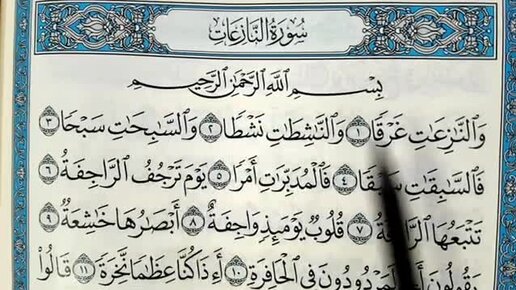 سُورَةُ النَّازِعَاتِ
بِسْمِ اللَّهِ الرَّحْمَٰنِ الرَّحِيمِ
وَالنَّازِعَاتِ غَرْقًا ١ وَالنَّاشِطَاتِ نَشْطًا ٢ وَالسَّابِحَاتِ سَبْحًا ٣
فَالسَّابِقَاتِ ٤ فَالْمُدَبِّرَاتِ أَمْرًا ٥ يَوْمَ تَرْجُفُ الرَّاجِفَةُ ٦
تَتْبَعُهَا ٧ قُلُوبٌ يَوْمَئِذٍ وَاجِفَةٌ ٨ أَبْصَارُهَا خَاشِعَةٌ ٩
يَقُولُونَ فِي الْحَافِرَةِ ١٠ أَءِذَا كُنَّا عِظَامًا نَّخِرَةً ١١ قَالُوا